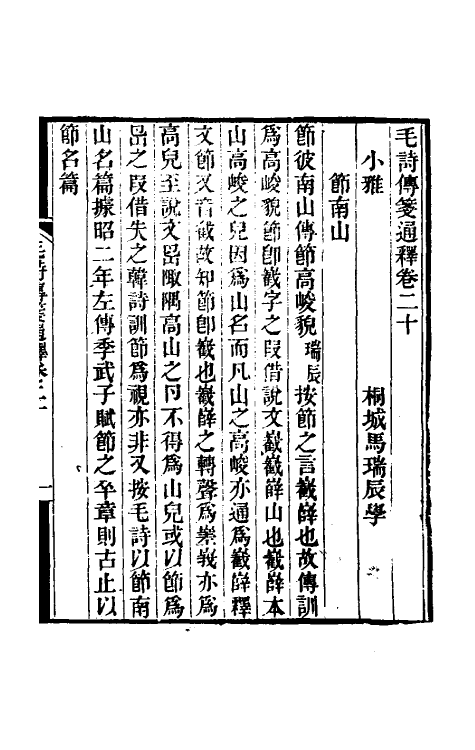 毛詩傳箋通釋卷二十
小雅　桐城馬瑞辰學
節南山
節彼南山傳節高峻貌瑞辰按節之言巀嶭也故傳訓
為高峻貌節卽巀字之叚借說文巀巀嶭山也巀嶭本
山高峻之皃因爲山名而凡山之高峻亦通爲巀嶭釋
文節又音截故知節卽巀也巀嶭之轉聲爲嶻嶪亦爲
高皃至說文岊陬隅高山之卪不得爲山皃或以節爲
岊之叚借失之韓詩訓節爲視亦非又按毛詩以節南
山名篇據昭二年左傳季武子賦節之卒章則古止以
節名篇
毛詩傳箋通釋卷二十
一